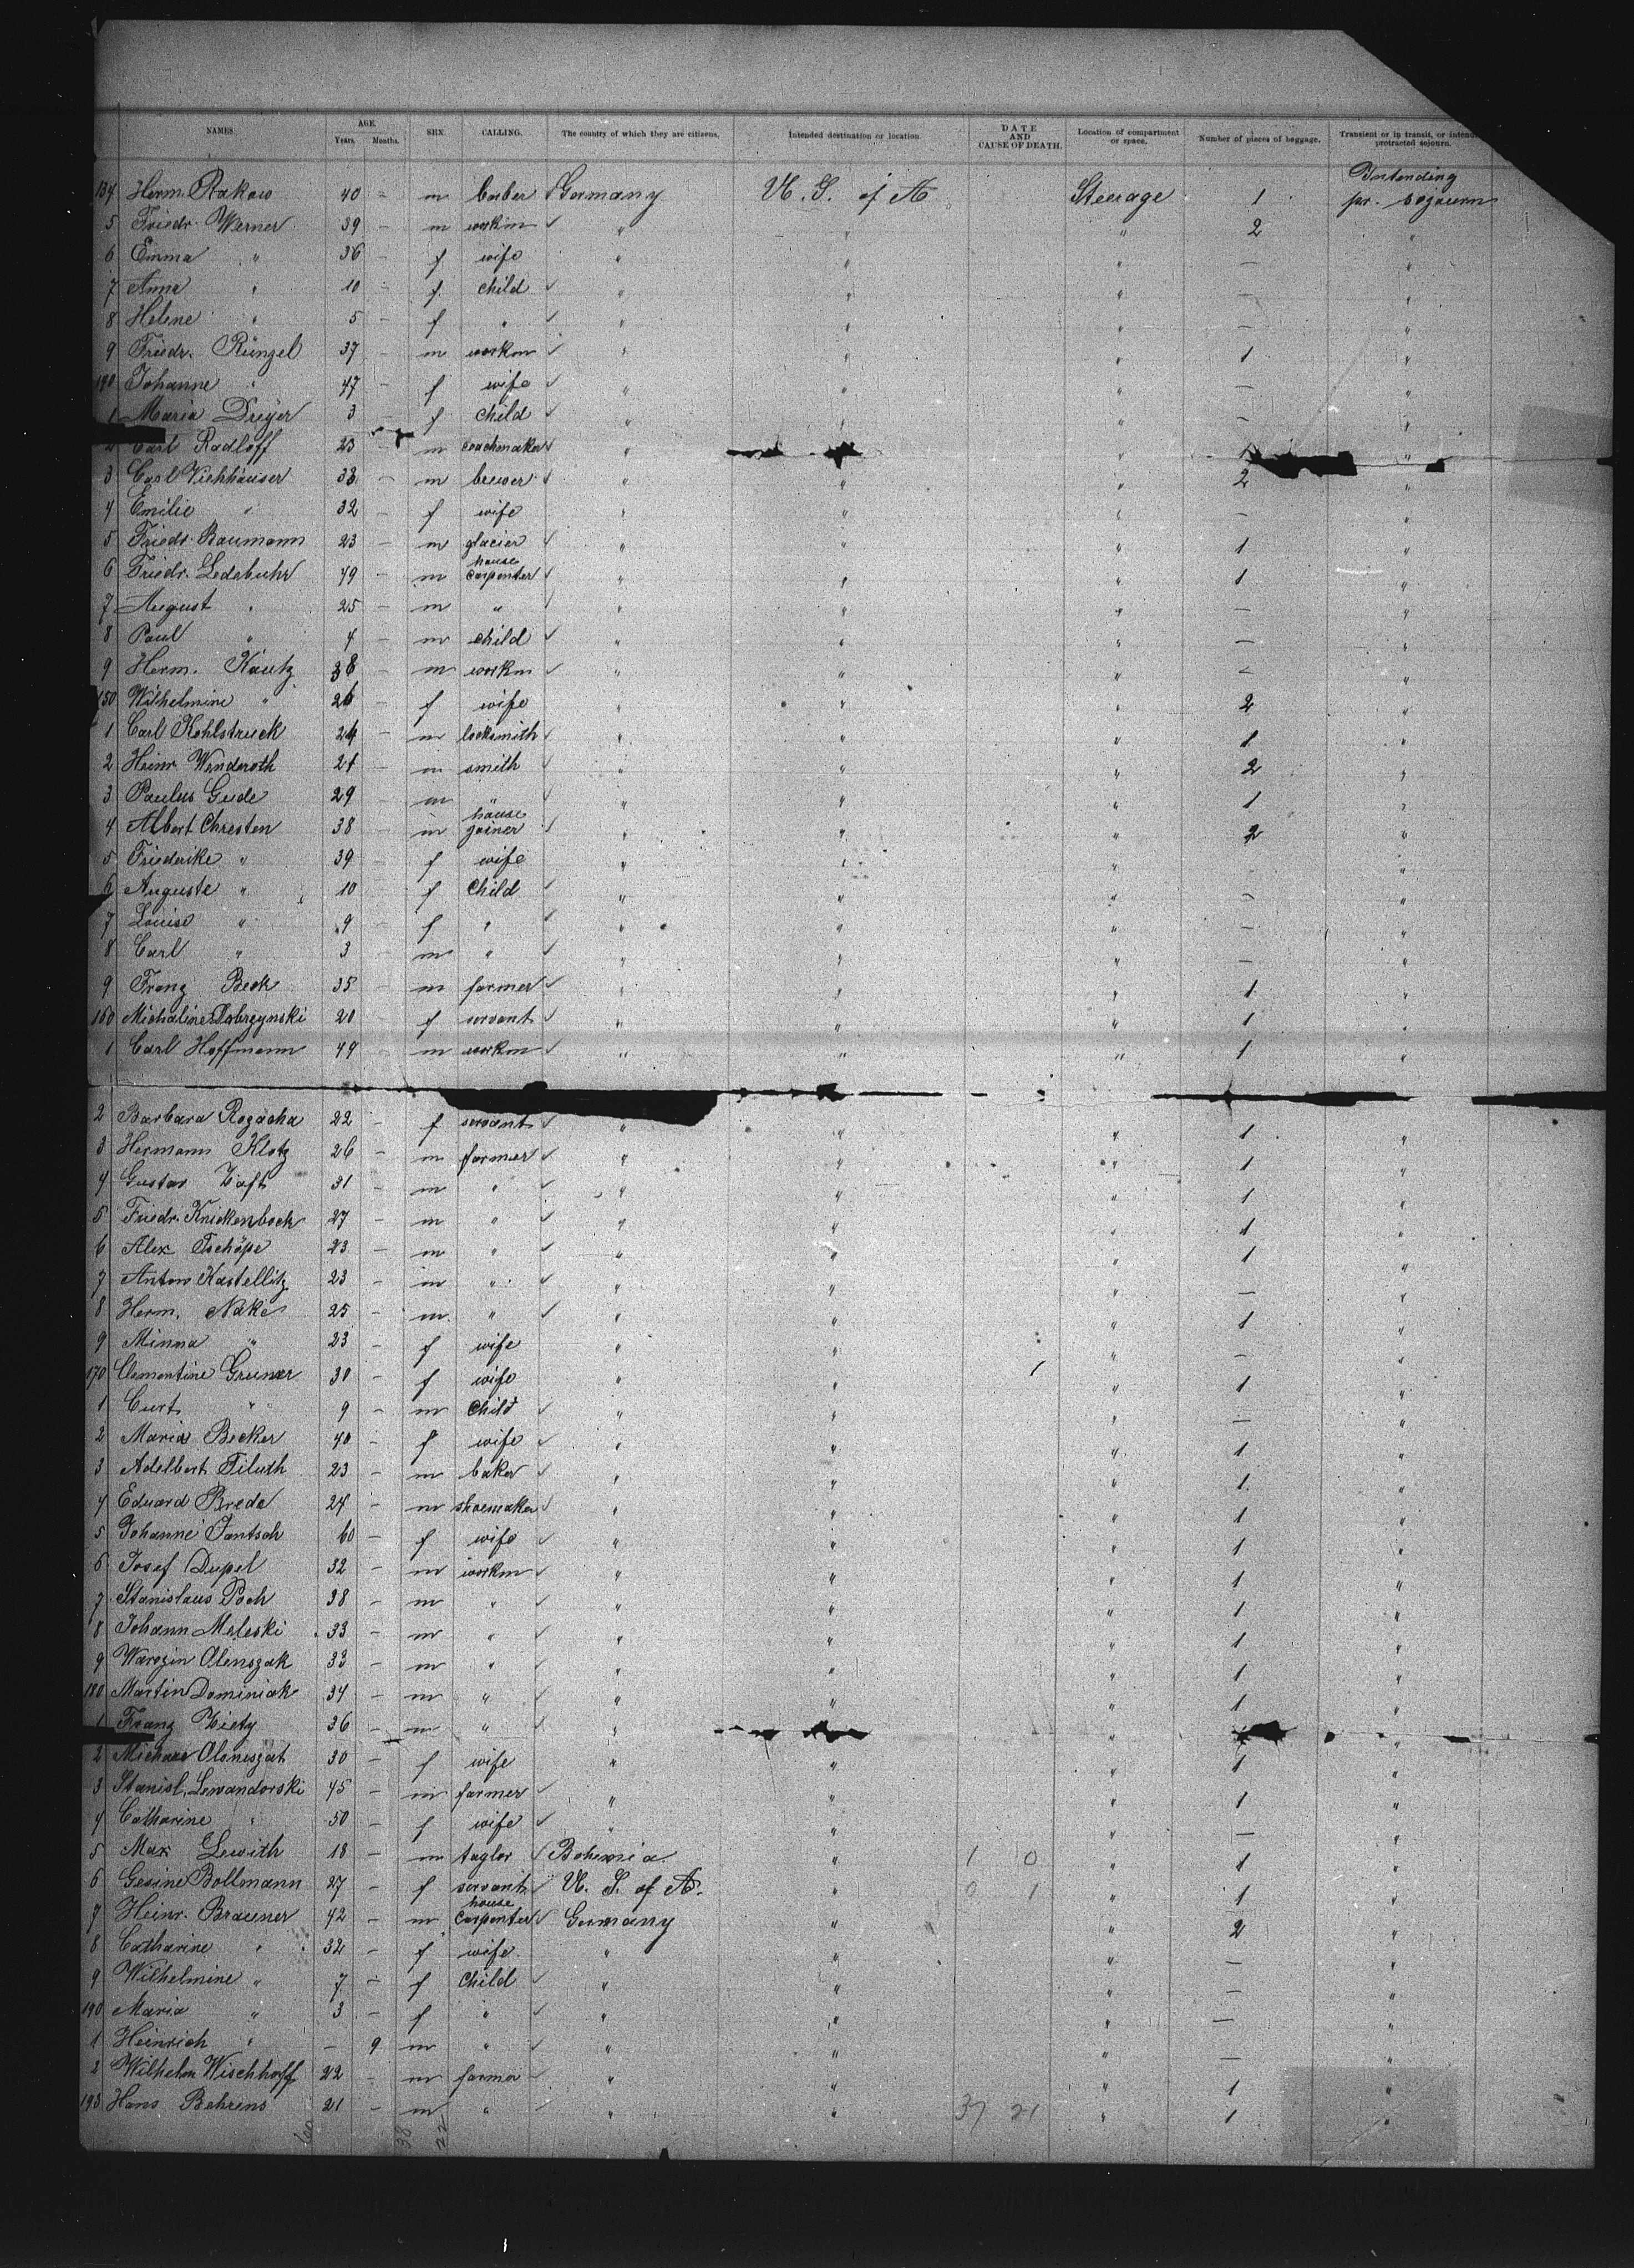 NAMES AGE. Years. Months. SEX. CALLING. The country of which they are citizens. Intended destination or location. DATE AND CAUSE OF DEATH. Location of compartment or space. Number of pieces of baggage. Transient or in transit, or protracted sojourn.
134 Herm. Rakow 40 - m barber Germany U. S. of A Steerage 1 Intending pr. sojourn
5 Friedr. Werner 39 - m workm " " " 2 "
6 Emma " 36 - f wife " " " — "
7 Anna " 10 - f child " " " — "
8 Helene " 5 - f " " " " — "
9 Friedr. Rüngel 37 - m workm " " " 1 "
140 Johanne " 47 - f wife " " " — "
1 Maria Dreÿer 3 f child " " " — "
2 Carl Radloff 23 m coachmaker " " "
3 Carl Viehhäuser 33 - m brewer " " " 2 "
4 Emilie " 32 - f wife " " " — "
5 Friedr. Baumann 23 - m glacier " " " 1 "
6 Friedr. Ledebuhr 49 - m house carpenter " " " 1 "
7 August " 25 - m " " " " — "
8 Paul " 4 - m child " " " — "
9 Herm. Kautz 38 - m workm " " " - "
150 Wilhelmine " 26 - f wife " " " 2 "
1 Carl Kohlstruck 24 - m locksmith " " " 1 "
2 Heinr. Wenderoth 21 - m smith " " " 2 "
3 Paulus Gude 29 - m " " " " 1 "
4 Albert Chresten 38 - m house joiner " " " 2 "
5 Friederike " 39 - f wife " " " "
6 Auguste " 10 - f Child " " " — "
7 Louise " 9 - f " " " " — "
8 Carl " 3 - m " " " " — "
9 Franz Beck 35 - m farmer " " " 1 "
160 Michaline Dobrzynski 20 - f servant " " " 1 "
1 Carl Hoffmann 49 - m workm " " " 1 "
2 Barbara Rogacha 22 - f servant " " " 1 "
3 Hermann Klotz 26 - m farmer " " " 1 "
4 Gustav 31 - m " " " " 1 "
5 Friedr. Knickenbock 27 - m " " " " 1 "
6 Alex Tschöpe 23 - m " " " " 1 "
7 Anton Kastellitz 23 - m " " " " — "
8 Herm. Nake 25 - m " " " " 1 "
9 Minna " 23 - f wife " " " — "
170 Clementine Gruner 30 - f wife " " " 1 "
1 Curt " 9 - m Child " " " — "
2 Maria Becker 40 - f wife " " " 1 "
3 Adelbert Filuth 23 - m baker " " " 1 "
4 Eduard Breda 24 - m shoemaker " " " 1 "
5 Johanne Jantsch 60 - f wife " " " 1 "
6 Josef Dupel 32 - m workm " " " 1 "
7 Stanislaus Poch 38 - m " " " " 1 "
8 Johann Meleski 33 - m " " " " 1 "
9 Olenszak 33 - m " " " " 1 "
180 Martin Dominiak 34 - m " " " " 1 "
1 Franz 36 - m " " " "
2 30 - f wife " " " 1 "
3 Stanisl. Lewandorski 45 - m farmer " " " 1 "
4 Catharine " 50 - f wife " " " — "
5 Max Lewith 18 - m taylor Bohemia " 1 0 " 1 "
6 Gesine Bollmann 27 - f servant U. S. of A. " 0 1 " 1 "
7 Heinr. Brauner 42 - m house carpenter Germany " " 2 "
8 Catharine " 32 - f wife " " " — "
9 Wilhelmine " 7 - f Child " " " — "
190 Maria " 3 - f " " " " — "
1 Heinrich " — 9 m " " " " — "
2 Wilhelm Wischhoff 22 - m farmer " " " 1 "
193 Hans Behrens 21 - m " " " 37 21 " 1 "
60 38 22